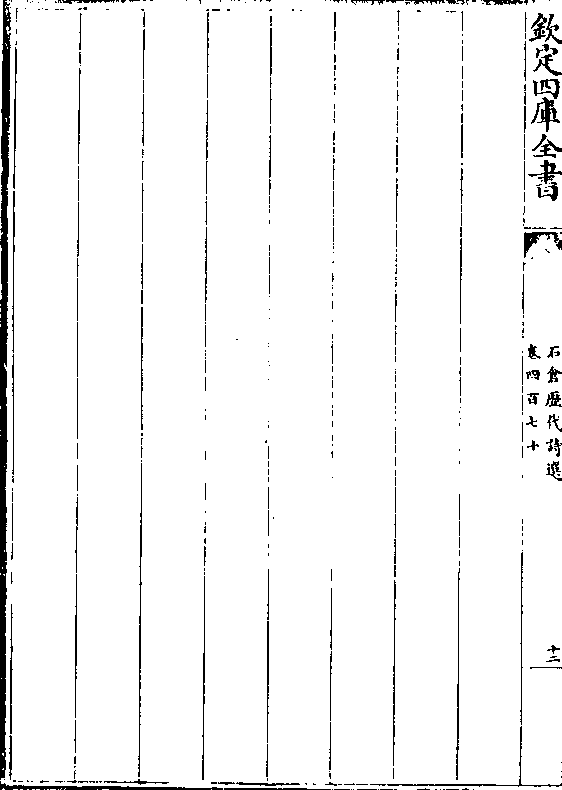 欽定四庫全書
石倉歷代詩選
卷四百七十
十二